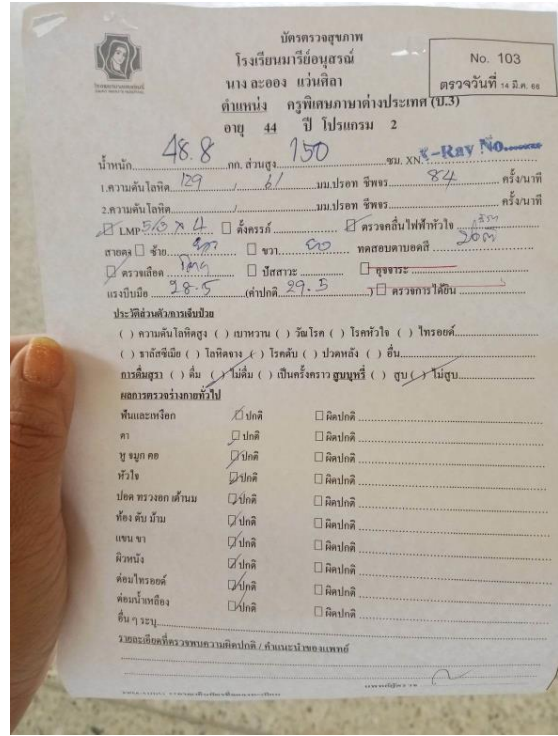 บัตรตรวจสุขภาพ
โรงเรียนมารีย์อนุสรณ์
No. 103
นาง ละออง แว่นศิลา
ตรวจวันที่ 14 มี.ค. 66
ตำแหน่ง ครูพิเศษภาษาต่างประเทศ (ป.3)
อายุ 44 ปี โปรแกรม 2
น้ำหนัก 48.8 กก. ส่วนสูง 150 ซม. XN. X-Ray No.
1.ความดันโลหิต 129 / 61 มม.ปรอท ชีพจร 84 ครั้ง/นาที
2.ความดันโลหิต / มม.ปรอท ชีพจร ครั้ง/นาที
LMP 5/3 x 4 ตั้งครรภ์ ตรวจคลื่นไฟฟ้าหัวใจ
สายตา ซ้าย ขวา ทดสอบตาบอดสี
ตรวจเลือด ปัสสาวะ อุจจาระ
แรงบีบมือ 28.5 (ค่าปกติ 29.5 ) ตรวจการได้ยิน
ประวัติส่วนตัว/การเจ็บป่วย
( ) ความดันโลหิตสูง ( ) เบาหวาน ( ) วัณโรค ( ) โรคหัวใจ ( ) ไทรอยด์
( ) ธาลัสซีเมีย ( ) โลหิตจาง ( ) โรคตับ ( ) ปวดหลัง ( ) อื่น
การดื่มสุรา ( ) ดื่ม ( ) ไม่ดื่ม ( ) เป็นครั้งคราว สูบบุหรี่ ( ) สูบ ( ) ไม่สูบ
ผลการตรวจร่างกายทั่วไป
ฟันและเหงือก ปกติ ผิดปกติ
ตา ปกติ ผิดปกติ
หู จมูก คอ ปกติ ผิดปกติ
หัวใจ ปกติ ผิดปกติ
ปอด ทรวงอก เต้านม ปกติ ผิดปกติ
ท้อง ตับ ม้าม ปกติ ผิดปกติ
แขน ขา ปกติ ผิดปกติ
ผิวหนัง ปกติ ผิดปกติ
ต่อมไทรอยด์ ปกติ ผิดปกติ
ต่อมน้ำเหลือง ปกติ ผิดปกติ
อื่น ๆ ระบุ
รายละเอียดที่ตรวจพบความผิดปกติ / คำแนะนำของแพทย์